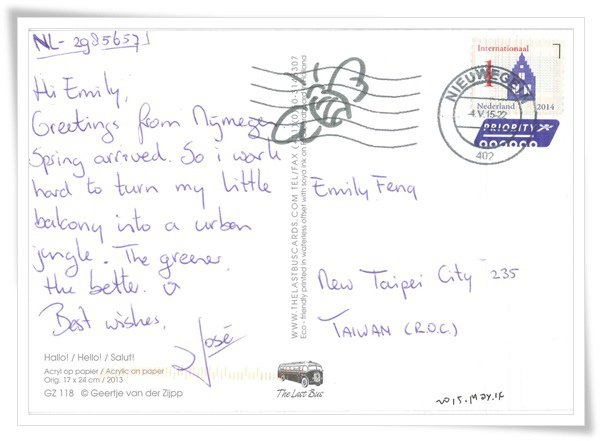 NL-2985657
Hi Emily,
Greetings from Nijmegen
Spring arrived. So i work
hard to turn my little
balkony into a urban
jungle. The greener
the better.
Best wishes,
José
Hallo! / Hello! / Salut!
Acryl op papier / Acrylic on paper
Orig. 17 x 24 cm / 2013
GZ 118 © Geertje van der Zijpp
WWW.THELASTBUSCARDS.COM TEL/FAX
Eco - friendly printed in waterless offset with soya ink on
The Last Bus
Internationaal
1
Nederland 2014
PRIORITY
NIEUWEGEIN
-4.V.15-22
402
Emily Feng
New Taipei City 235
TAIWAN (R.O.C.)
2015.May.14